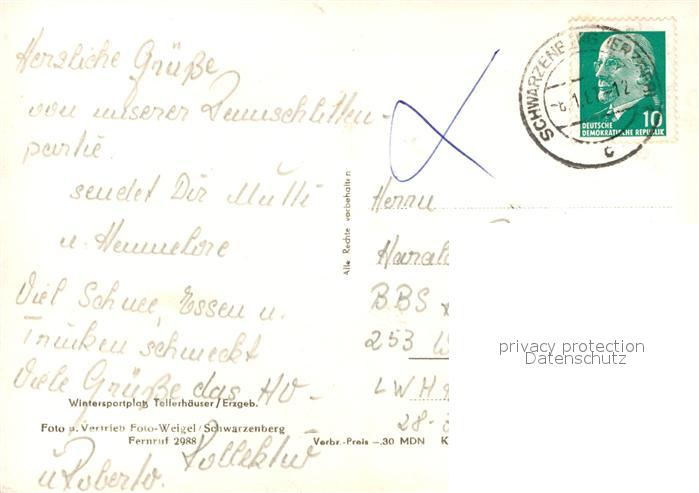 Herzliche Grüße
von unserer Rennschlitten-
partie
sendet Dir Mutti
u. Hannelore
Viel Schnee, Essen u.
Trinken schmeckt
Viele Grüße das HO-
Kollektiv
u Roberto.
Wintersportplatz Tellerhäuser/Erzgeb.
Foto u. Vertrieb Foto-Weigel/Schwarzenberg
Fernruf 2988
Verbr.-Preis -.30 MDN K
Alle Rechte vorbehalten
SCHWARZENBERG (ERZGEB)
c
DEUTSCHE
DEMOKRATISCHE REPUBLIK
10
Herrn
Haral
BBS
253 W
LWH
28-
privacy protection
Datenschutz